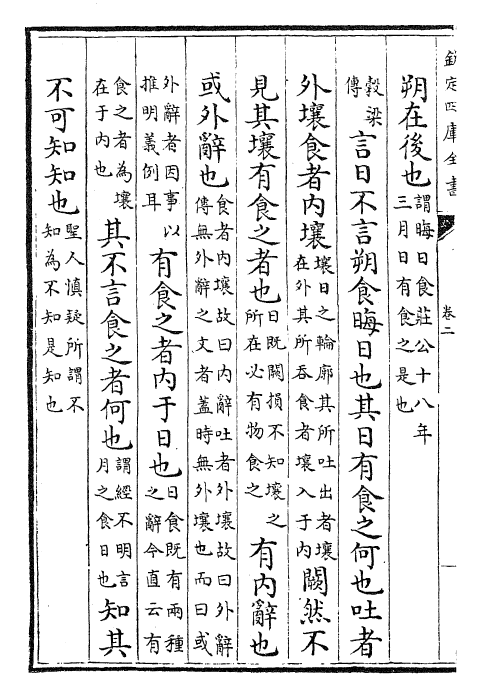 欽定四庫全書
卷二
朔在後也謂晦日食莊公十八年三月日有食之是也
穀梁傳言日不言朔食晦日也其日有食之何也吐者
外壤食者内壤壤日之輪廓其所吐出者壤在外其所吞食者壤入于内闕然不
見其壤有食之者也日既闕損不知壤之所在必有物食之有内辭也
或外辭也食者内壤故曰内辭吐者外壤故曰外辭傳無外辭之文者蓋時無外壤也而曰或
外辭者因事以推明義例耳有食之者内于日也日食既有兩種之辭今直云有
食之者為壤在于内也其不言食之者何也謂經不明言月之食日也知其
不可知知也聖人慎疑所謂不知為不知是知也